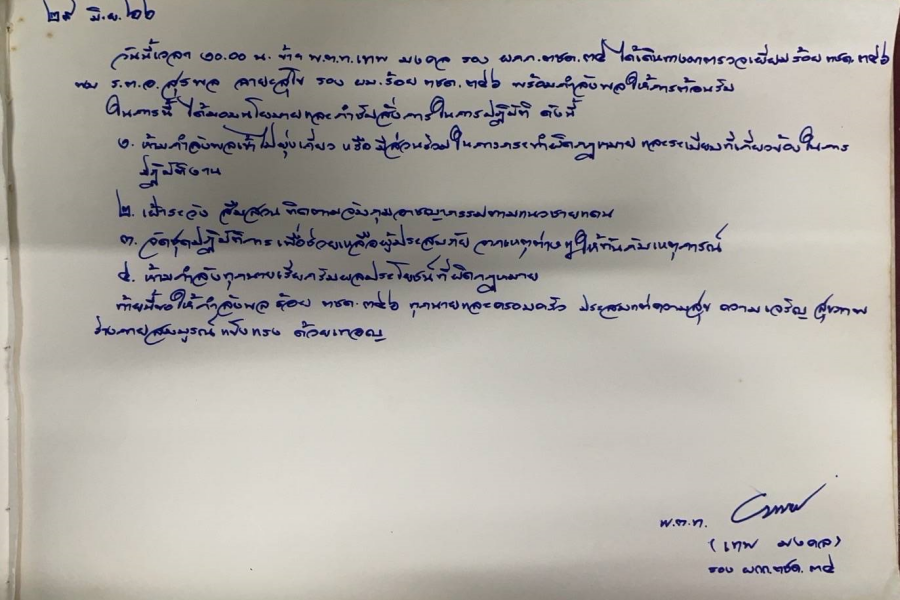 ๒๙ มิ.ย. ๖๖
วันนี้เวลา ๑๐.๐๐ น. ข้าฯ พ.ต.ท.เทพ มงคล รอง ผกก.ตชด.๓๔ ได้เดินทางมาตรวจเยี่ยม ร้อย ตชด.๓๔๖
พบ ร.ต.อ.สุรพล ลายะสุโข รอง ผบ.ร้อย ตชด.๓๔๖ พร้อมกำลังพลให้การต้อนรับ
ในการนี้ ได้มอบนโยบายและกำชับสั่งการในการปฏิบัติ ดังนี้
๑. ห้ามกำลังพลเข้าไปยุ่งเกี่ยว หรือ มีส่วนร่วมในการกระทำผิดกฎหมาย และระเบียบที่เกี่ยวข้องในการ
ปฏิบัติงาน
๒. เฝ้าระวัง สืบสวน ติดตามจับกุมอาชญากรรมตามแนวชายแดน
๓. จัดชุดปฏิบัติการ เพื่อช่วยเหลือผู้ประสบภัย จากเหตุต่างๆให้ทันกับเหตุการณ์
๔. ห้ามกำลังทุกนายเรียกรับผลประโยชน์ที่ผิดกฎหมาย
ท้ายนี้ขอให้กำลังพล ร้อย ตชด.๓๔๖ ทุกนายและครอบครัว ประสบแต่ความสุข ความเจริญ สุขภาพ
ร่างกายสมบูรณ์ แข็งแรง ด้วยเทอญ
พ.ต.ท.
(เทพ มงคล)
รอง ผกก.ตชด.๓๔